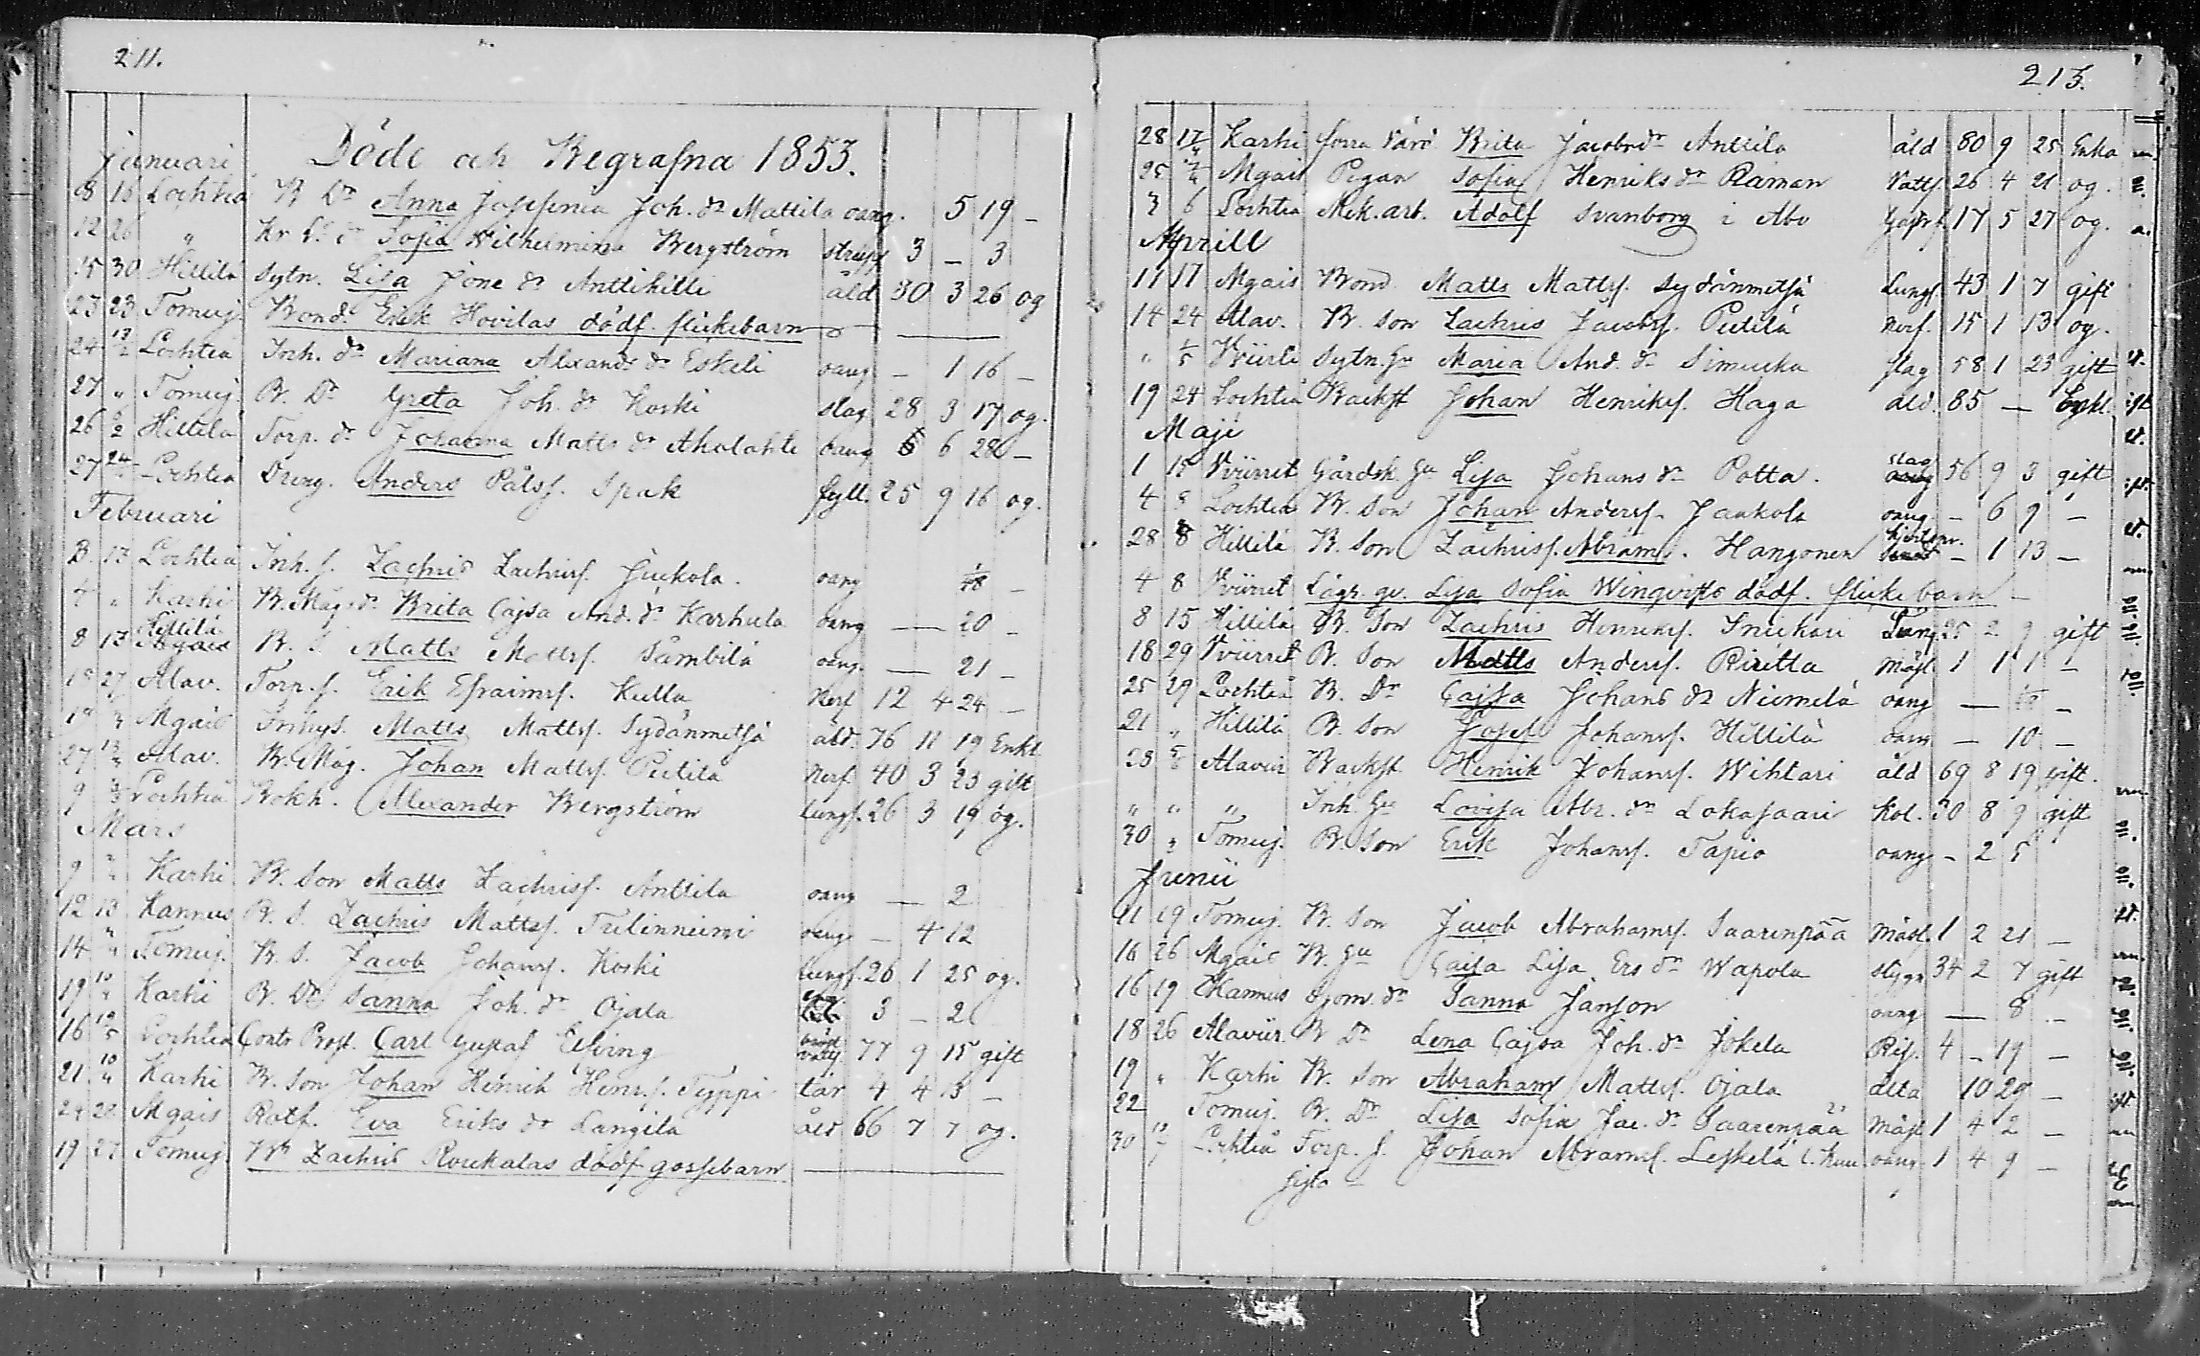 211.
Döde och Begrafna 1853.
Januari
8 16 Lochteå B Dr Anna Josefina Joh. dr Mattila oang. 5 19 -
12 26 " Sofia Wilhelmina Bergström strupf 3 - 3
15 30 Hillilä Sytn. Lisa Jons dr Anttihilli åld 30 3 26 og
23 23 Tomuj. Bond. Erik Hovilas dödf. flickebarn
24 13/2 Lochteå Inh. dr Mariana Alexand. dr Eskeli oang - 1 16 -
27 " Tomuj. B. Dr Greta Joh. dr Koski slag 28 3 17 og.
26 6/2 Hillilä Torp. dr Johanna Matts dr Aholahti oang 6 28 -
27 Lochteå Dreng. Anders Pålsf. Spak fyll. 25 9 16 og.
Februari
13 Lochteå Inh. s. Zachris Zachrisf. Juckola. oang -
" Karhi B. Måg. dr Brita Cajsa And. dr Karhula oang — 20 -
8 13 Hillilä B. S. Matts Mattsf. Såmbilä oang. — 21 -
27 Alav. Torp. s. Erik Efraimsf. Kulla Nerf 12 4 24 -
Mgais Inhys. Matts Mattsf. Sydänmetsä åld. 76 11 19 Enkl.
27 13/3 Alav. B. Måg. Johan Mattsf. Peitila Nerf. 40 3 23 gift
9 Lochteå Bokh. Alexander Bergström lungf. 26 3 19 og.
Mars
9 Karhi B. Son Matts Zachrisf. Anttila oang — 2
12 13 Kannus B. S. Zachris Mattsf. Trilinneimi oang - 4 12
14 Tomuj. B. S. Jacob Johansf. Koski lungf. 26 1 25 og.
19 10/4 Karhi B. Dr Sanna Joh. dr Ojala 3 - 2
16 Lochteå Conts Prost. Carl Gustaf Elfving bröst vatts 77 9 15 gift
21 10/4 Karhi B. Son Johan Henrik Henrsf. Typpi tär 4 4 13 -
24 28 Mgais Rotf. Eva Eriks dr Langila åld 66 7 7 og.
19 27 Tomuj. Zachris Roukalas dödf gossebarn
213.
28 17 Karhi forra Värd Brita Jacobs dr Anttila åld 80 9 25 Enka
25 Mgais Pigan Sofia Henriks dr Raman Vatts 26 4 21 og.
3 6 Lochteå Mek. arb. Adolf Svanborg i Abo 17 5 27 og.
Aprill
11 17 Mgais Bond Matts Mattsf. Sydänmetsä Lungf. 43 1 7 gift
14 24 Alav. B. Son Zachris Jacobsf. Peitilä Nerf. 15 1 13 og.
" 1/5 Sytn. Hu Maria And. dr Simucka slag 58 1 23 gift
19 24 Lochteå Backst Johan Henriksf. Haga åld. 85 — Enkl.
Maji
1 15 Gårdsk. Hu Lisa Johans dr Potta. slag 56 9 3 gift
4 8 Lochteå B. Son Johan Andersf. Jaukola oang - 6 9 -
28 8 Hillilä B. Son Zachrisf. Abrams. Hangonen - 1 13 -
4 8 Lisa Sofia Winqvists dödf. flickebarn -
8 15 Hillilä B. Son Zachris Henriksf. Snickari Lung 25 2 9 gift
18 29 B. Son Matts Andersf. Riitta Mäsl 1 1 1 -
25 29 Lochteå B. Dr Cajsa Johans dr Niemelä oang —
21 " Hillilä B. Son Josef Johansf. Hillilä oang - 10 -
23 5/6 Alaviir Backst. Henrik Johansf. Wihtari åld 69 8 19 gift.
" " " Inh. Hu Lovisa Abr. dr Lokasaari Kol. 30 8 9 gift
30 " Tomuj. B Son Erik Johansf. Tapio oang - 2 5
Junii
11 19 Tomuj. B. Son Jacob Abrahamsf. Saarenpää Mäsl. 1 2 21 -
16 26 Mgais B. Hu Caisa Lisa Ers dr Wapola 34 2 7 gift
16 19 Kannus Sjom. dr Sanna Janson oang — 8 -
18 26 Alaviir B Dr Lena Cajsa Joh. dr Jokela Risf. 4 - 19 -
19 " Karhi B. Son Abraham Mattsf. Ojala älta 10 29 -
22 Tomuj. B. Dr Lisa Sofia Jac. dr Saarenpää Mäsl 1 4 2 -
30 Lochteå Torp. s. Johan Abramsf. Leskelä oang. 1 4 9 -